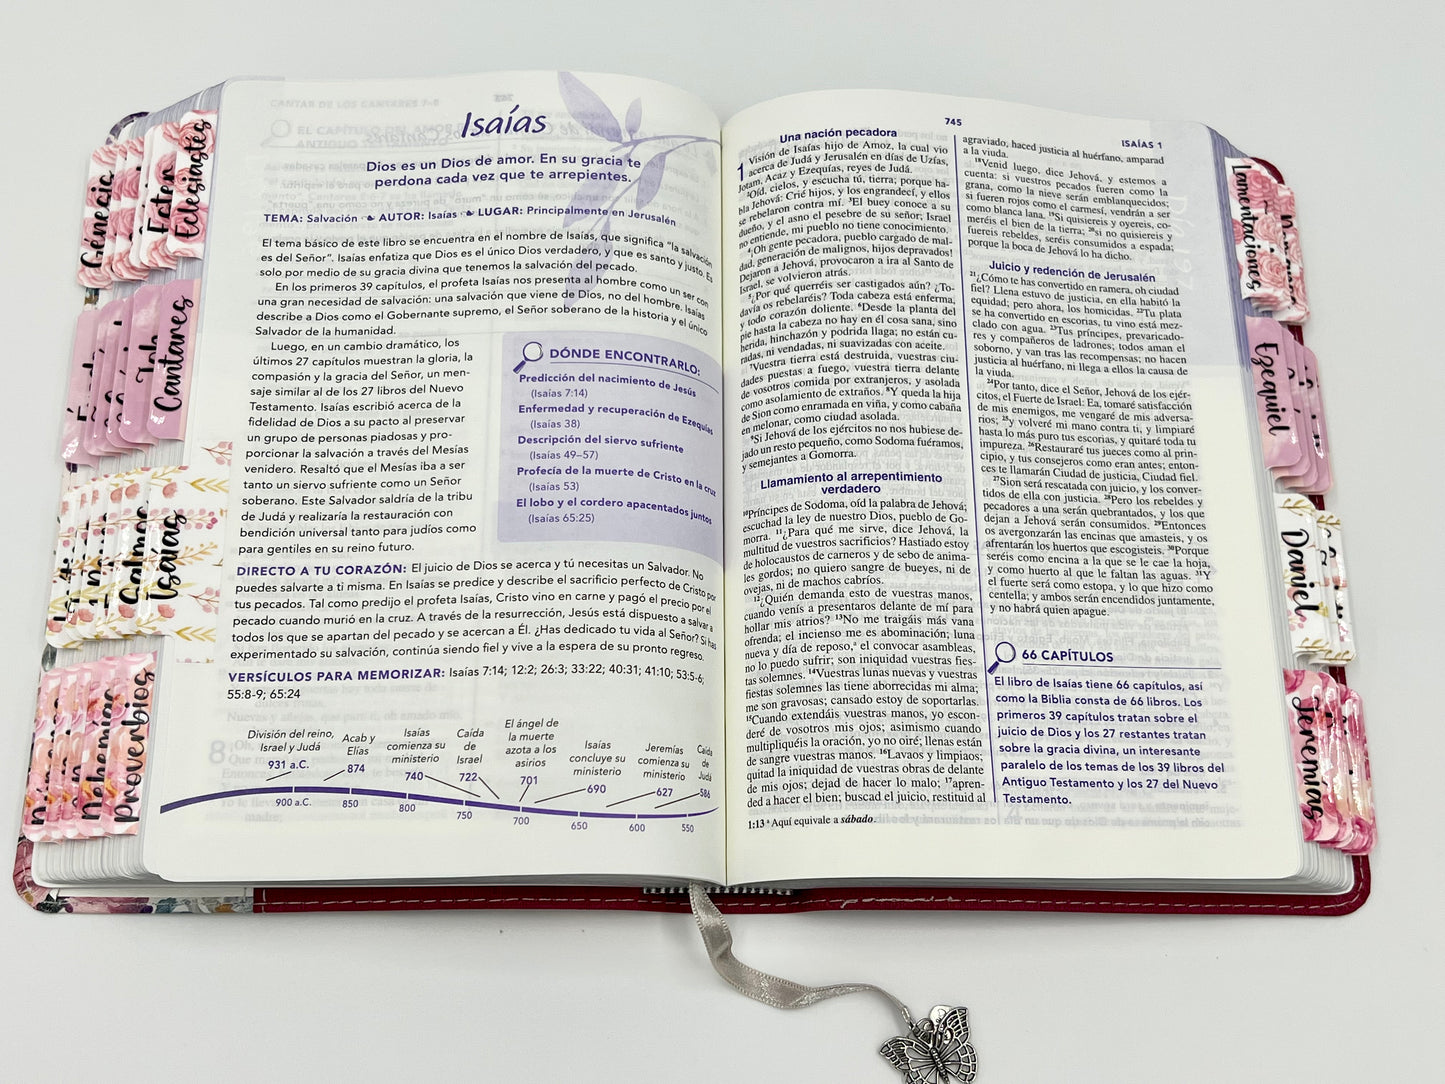 Isaías
Dios es un Dios de amor. En su gracia te
perdona cada vez que te arrepientes.
TEMA: Salvación AUTOR: Isaías LUGAR: Principalmente en Jerusalén
El tema básico de este libro se encuentra en el nombre de Isaías, que significa "la salvación
es del Señor". Isaías enfatiza que Dios es el único Dios verdadero, y que es santo y justo. Es
solo por medio de su gracia divina que tenemos la salvación del pecado.
En los primeros 39 capítulos, el profeta Isaías nos presenta al hombre como un ser con
una gran necesidad de salvación: una salvación que viene de Dios, no del hombre. Isaías
describe a Dios como el Gobernante supremo, el Señor soberano de la historia y el único
Salvador de la humanidad.
Luego, en un cambio dramático, los
últimos 27 capítulos muestran la gloria, la
compasión y la gracia del Señor, un men-
saje similar al de los 27 libros del Nuevo
Testamento. Isaías escribió acerca de la
fidelidad de Dios a su pacto al preservar
un grupo de personas piadosas y pro-
porcionar la salvación a través del Mesías
venidero. Resaltó que el Mesías iba a ser
tanto un siervo sufriente como un Señor
soberano. Este Salvador saldría de la tribu
de Judá y realizaría la restauración con
bendición universal tanto para judíos como
para gentiles en su reino futuro.
DÓNDE ENCONTRARLO:
Predicción del nacimiento de Jesús
(Isaías 7:14)
Enfermedad y recuperación de Ezequías
(Isaías 38)
Descripción del siervo sufriente
(Isaías 49–57)
Profecía de la muerte de Cristo en la cruz
(Isaías 53)
El lobo y el cordero apacentados juntos
(Isaías 65:25)
DIRECTO A TU CORAZÓN: El juicio de Dios se acerca y tú necesitas un Salvador. No
puedes salvarte a ti misma. En Isaías se predice y describe el sacrificio perfecto de Cristo por
tus pecados. Tal como predijo el profeta Isaías, Cristo vino en carne y pagó el precio por el
pecado cuando murió en la cruz. A través de la resurrección, Jesús está dispuesto a salvar a
todos los que se apartan del pecado y se acercan a Él. ¿Has dedicado tu vida al Señor? Si has
experimentado su salvación, continúa siendo fiel y vive a la espera de su pronto regreso.
VERSÍCULOS PARA MEMORIZAR: Isaías 7:14; 12:2; 26:3; 33:22; 40:31; 41:10; 53:5-6;
55:8-9; 65:24
División del reino, Israel y Judá
931 a.C.
Acab y Elías
874
Isaías comienza su ministerio
740
Caída de Israel
722
El ángel de la muerte azota a los asirios
701
Isaías concluye su ministerio
690
Jeremías comienza su ministerio
627
Caída de Judá
586
900 a.C. 850 800 750 700 650 600 550
745
ISAÍAS 1
Una nación pecadora
1 Visión de Isaías hijo de Amoz, la cual vio
acerca de Judá y Jerusalén en días de Uzías,
Jotam, Acaz y Ezequías, reyes de Judá.
2Oíd, cielos, y escucha tú, tierra; porque ha-
bla Jehová: Crié hijos, y los engrandecí, y ellos
se rebelaron contra mí. 3El buey conoce a su
dueño, y el asno el pesebre de su señor; Israel
no entiende, mi pueblo no tiene conocimiento.
4¡Oh gente pecadora, pueblo cargado de mal-
dad, generación de malignos, hijos depravados!
Dejaron a Jehová, provocaron a ira al Santo de
Israel, se volvieron atrás.
5¿Por qué querréis ser castigados aún? ¿To-
davía os rebelaréis? Toda cabeza está enferma,
y todo corazón doliente. 6Desde la planta del
pie hasta la cabeza no hay en él cosa sana, sino
herida, hinchazón y podrida llaga; no están cu-
radas, ni vendadas, ni suavizadas con aceite.
7Vuestra tierra está destruida, vuestras ciu-
dades puestas a fuego, vuestra tierra delante
de vosotros comida por extranjeros, y asolada
como asolamiento de extraños. 8Y queda la hija
de Sion como enramada en viña, y como cabaña
en melonar, como ciudad asolada.
9Si Jehová de los ejércitos no nos hubiese de-
jado un resto pequeño, como Sodoma fuéramos,
y semejantes a Gomorra.
Llamamiento al arrepentimiento
verdadero
10Príncipes de Sodoma, oíd la palabra de Jehová;
escuchad la ley de nuestro Dios, pueblo de Go-
morra. 11¿Para qué me sirve, dice Jehová, la
multitud de vuestros sacrificios? Hastiado estoy
de holocaustos de carneros y de sebo de anima-
les gordos; no quiero sangre de bueyes, ni de
ovejas, ni de machos cabríos.
12¿Quién demanda esto de vuestras manos,
cuando venís a presentaros delante de mí para
hollar mis atrios? 13No me traigáis más vana
ofrenda; el incienso me es abominación; luna
nueva y día de reposo,a el convocar asambleas,
no lo puedo sufrir; son iniquidad vuestras fies-
tas solemnes. 14Vuestras lunas nuevas y vuestras
fiestas solemnes las tiene aborrecidas mi alma;
me son gravosas; cansado estoy de soportarlas.
15Cuando extendáis vuestras manos, yo escon-
deré de vosotros mis ojos; asimismo cuando
multipliquéis la oración, yo no oiré; llenas están
de sangre vuestras manos. 16Lavaos y limpiaos;
quitad la iniquidad de vuestras obras de delante
de mis ojos; dejad de hacer lo malo; 17apren-
ded a hacer el bien; buscad el juicio, restituid al
1:13 a Aquí equivale a sábado.
agraviado, haced justicia al huérfano, amparad
a la viuda.
18Venid luego, dice Jehová, y estemos a
cuenta: si vuestros pecados fueren como la
grana, como la nieve serán emblanquecidos;
si fueren rojos como el carmesí, vendrán a ser
como blanca lana. 19Si quisiereis y oyereis, co-
meréis el bien de la tierra; 20si no quisiereis y
fuereis rebeldes, seréis consumidos a espada;
porque la boca de Jehová lo ha dicho.
Juicio y redención de Jerusalén
21¿Cómo te has convertido en ramera, oh ciudad
fiel? Llena estuvo de justicia, en ella habitó la
equidad; pero ahora, los homicidas. 22Tu plata
se ha convertido en escorias, tu vino está mez-
clado con agua. 23Tus príncipes, prevaricado-
res y compañeros de ladrones; todos aman el
soborno, y van tras las recompensas; no hacen
justicia al huérfano, ni llega a ellos la causa de
la viuda.
24Por tanto, dice el Señor, Jehová de los ejér-
citos, el Fuerte de Israel: Ea, tomaré satisfacción
de mis enemigos, me vengaré de mis adversa-
rios; 25y volveré mi mano contra ti, y limpiaré
hasta lo más puro tus escorias, y quitaré toda tu
impureza. 26Restauraré tus jueces como al prin-
cipio, y tus consejeros como eran antes; enton-
ces te llamarán Ciudad de justicia, Ciudad fiel.
27Sion será rescatada con juicio, y los conver-
tidos de ella con justicia. 28Pero los rebeldes y
pecadores a una serán quebrantados, y los que
dejan a Jehová serán consumidos. 29Entonces
os avergonzarán las encinas que amasteis, y os
afrentarán los huertos que escogisteis. 30Porque
seréis como encina a la que se le cae la hoja,
y como huerto al que le faltan las aguas. 31Y
el fuerte será como estopa, y lo que hizo como
centella; y ambos serán encendidos juntamente,
y no habrá quien apague.
66 CAPÍTULOS
El libro de Isaías tiene 66 capítulos, así
como la Biblia consta de 66 libros. Los
primeros 39 capítulos tratan sobre el
juicio de Dios y los 27 restantes tratan
sobre la gracia divina, un interesante
paralelo de los temas de los 39 libros del
Antiguo Testamento y los 27 del Nuevo
Testamento.
Génesis
Ester
Eclesiastés
Job
Cantares
Salmos
Isaías
Nehemías
Proverbios
Lamentaciones
Ezequiel
Daniel
Jeremías